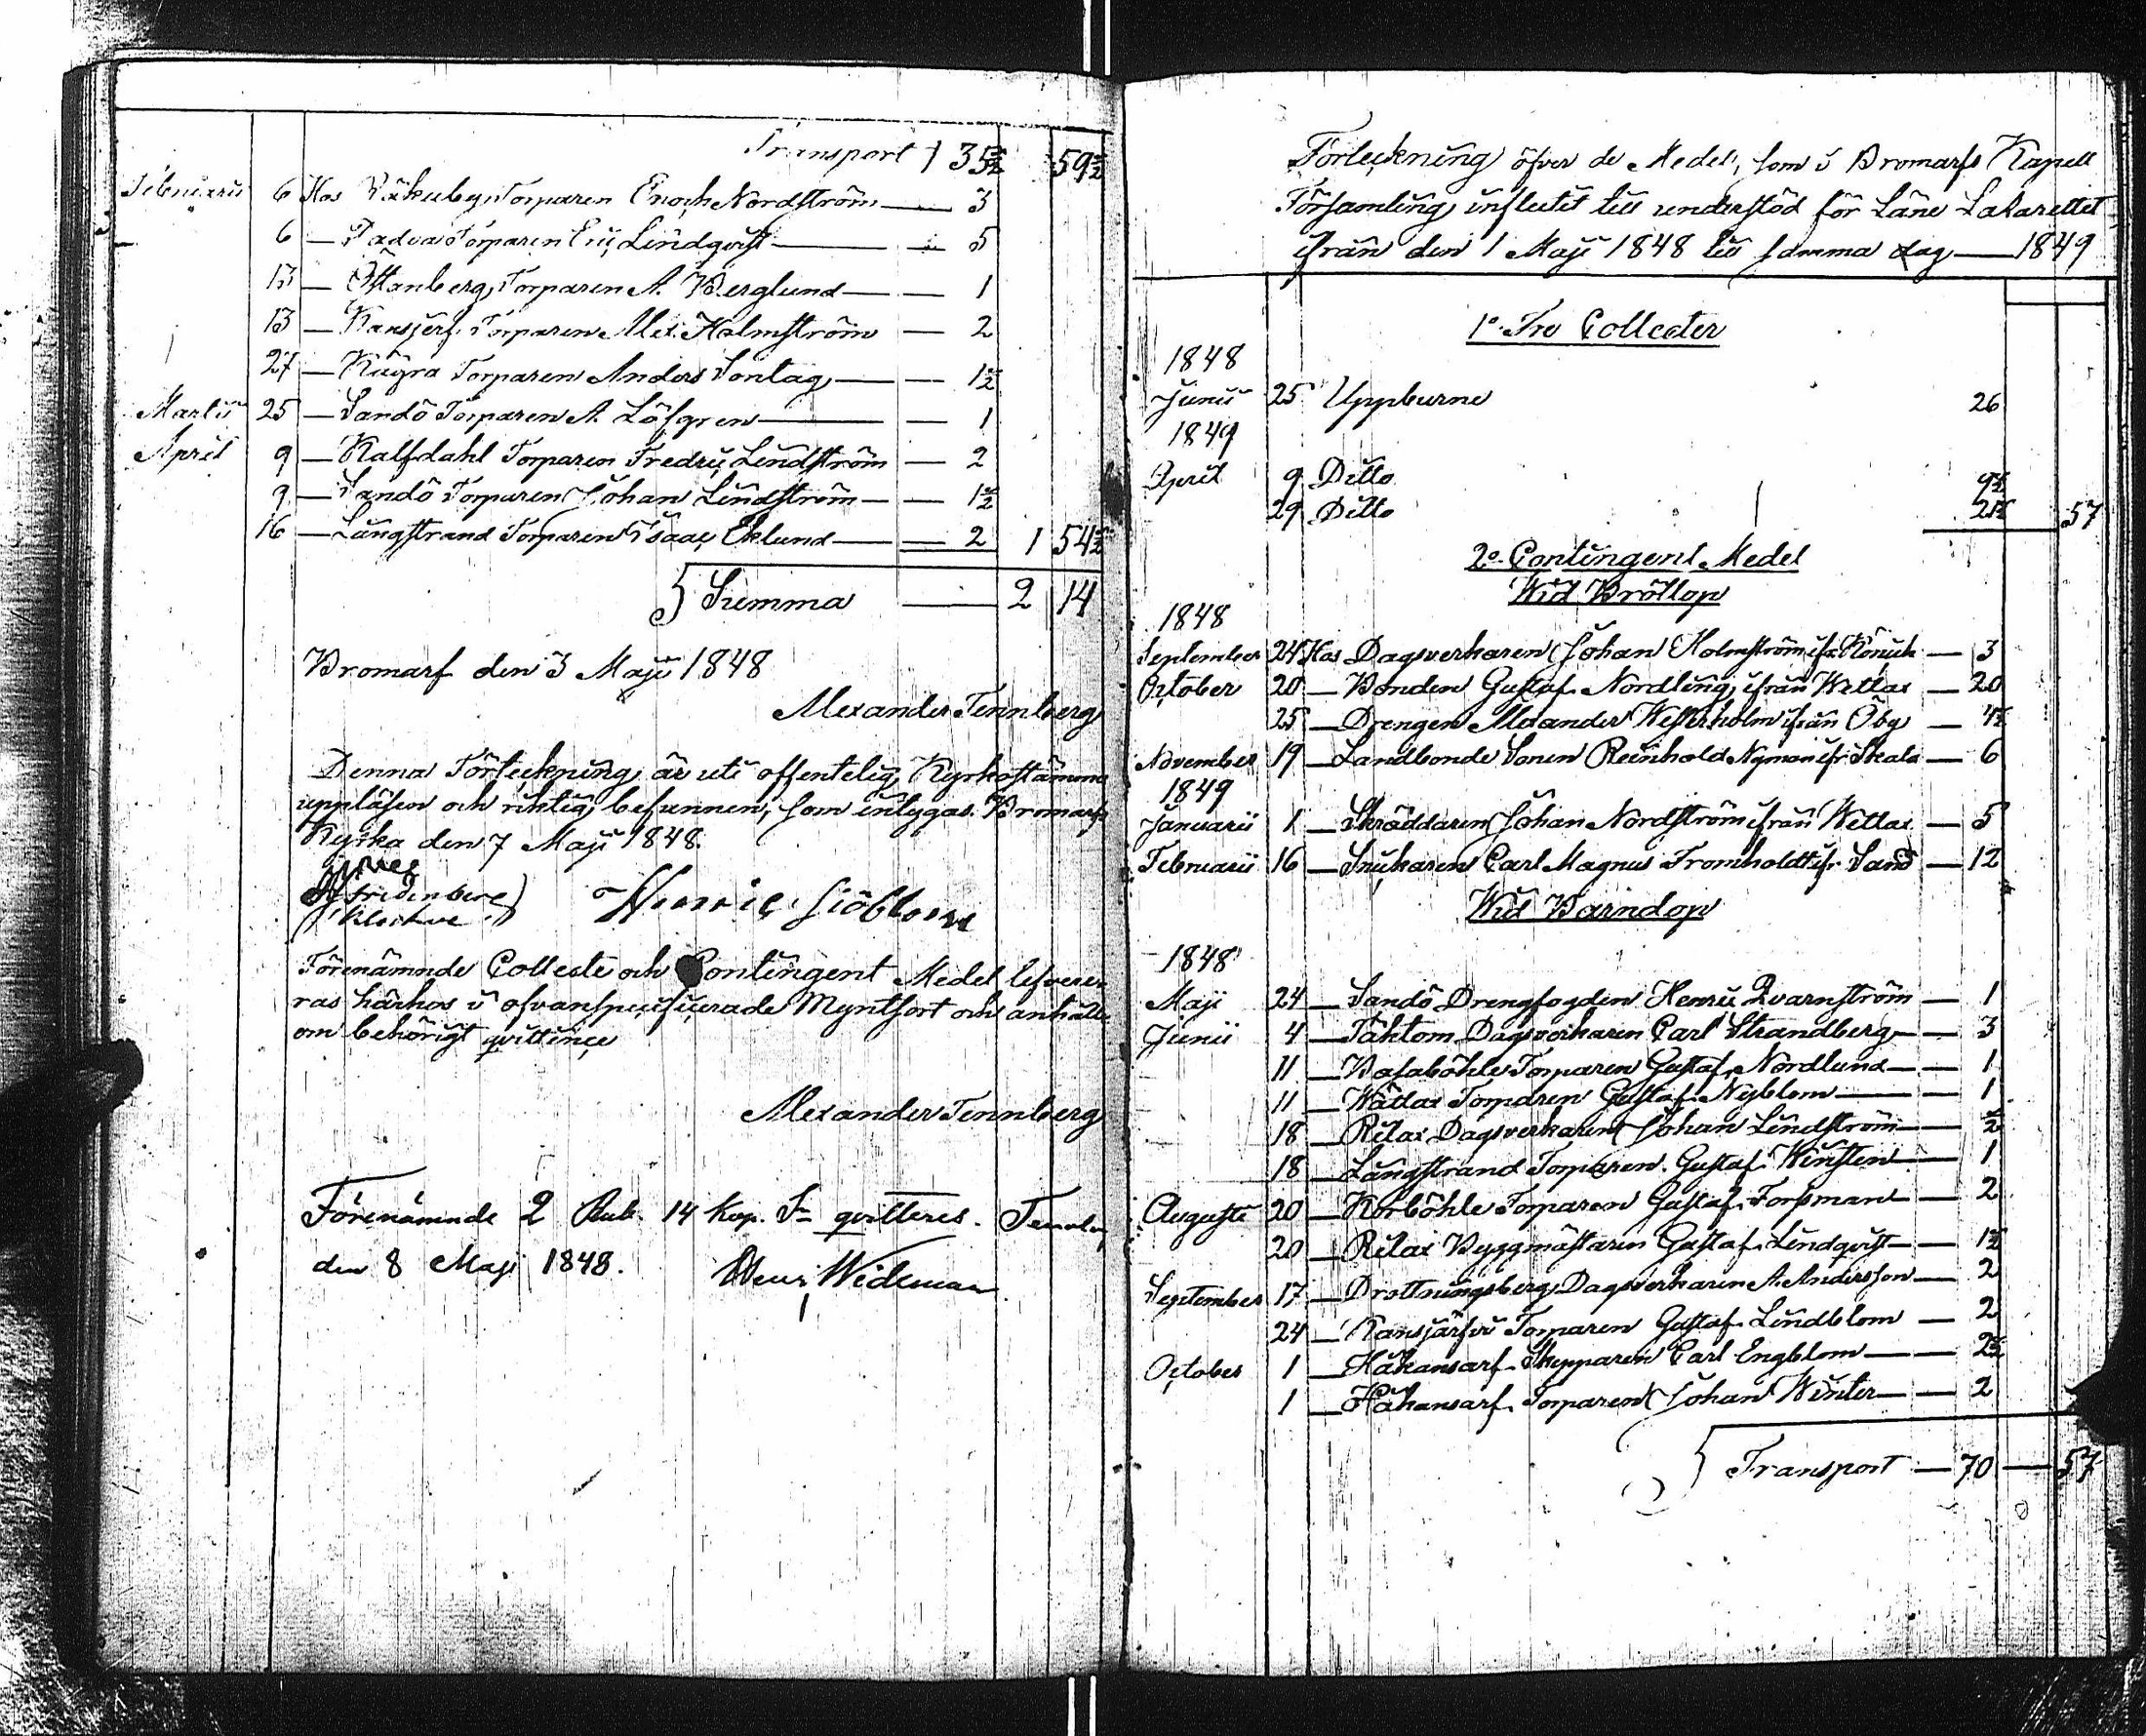 Transport 1 35½ 59½
Februarii 6 Hos Båkuby Torparen Enoch Nordström — 3
6 — Padva Torparen Eric Lindqvist — 5
13 — Östanberg Torparen A. Berglund — 1
13 — Kansjerf Torparen Alex. Holmström — 2
27 — Kugra Torparen Anders Sontag — 1½
Martii 25 — Sandö Torparen A. Löfgren — 1
April 9 — Kalfdahl Torparen Fredric Lindström — 2
9 — Sandö Torparen Johan Lindström — 1½
16 — Långstrand Torparen Isaac Eklund — 2 1 54½
Summa — 2 14
Bromarf den 3 Maji 1848
Alexander Tennberg
Denna Förteckning är uti offentelig Kyrkostämma
uppläsen och riktig befunnen, som intygas. Bromarfs
Kyrka den 7 Maji 1848.
Henric Siöblom
Förenämnde Collecte och Contingent Medel lefvere-
ras härhos i ofvanspecificerade Myntsort och anhålles
om behörigt qvittince
Alexander Tennberg
Förenämnde 2 Rub. 14 Kop. Sr qvitteres. Tenala
den 8 Maji 1848. Henr. Wideman
Förteckning öfver de Medel, som i Bromarfs Kapell
Församling influtit till understöd för Läne Lazarettet
ifrån den 1 Maji 1848 till samma dag — 1849
1o. Tre Collecter
1848
Junii 25 Uppburne 26
1849
April 9 Ditto 9½
29 Ditto 21½ 57
2o. Contingent Medel
Wid Bröllop
1848
September 24 Hos Dagsverkaren Johan Holmström ifr. — 3
October 20 — Bonden Gustaf Nordling ifrån Wettlax — 20
25 — Drengen Alexander Westerholm ifrån Öby — 4½
November 19 — Landbonde Sonen Reinhold Nyman ifr. Skala — 6
1849
Januarii 1 — Skräddaren Johan Nordström ifrån Wettlax — 5
Februarii 16 — Snickaren Carl Magnus Fromholdt ifr. Sand — 12
Wid Barndop
1848
Maji 24 — Sandö Drengfogden Henric Qvarnström — 1
Junii 4 — Täktom Dagsverkaren Carl Strandberg — 3
11 — Basaböhle Torparen Gustaf Nordlund — 1
11 — Wättlax Torparen Gustaf Nyblom — 1
18 — Rilax Dagsverkaren Johan Lindström — ½
18 — Långstrand Torparen Gustaf Winsten — 1
Augusti 20 — Korböhle Torparen Gustaf Forsman — 2
20 — Rilax Byggmästaren Gustaf Lindqvist — 1½
September 17 — Drottningsberg Dagsverkaren A. Andersson — 2
24 — Kansjärfvi Torparen Gustaf Lindblom — 2
October 1 — Håkansarf Skepparen Carl Engblom — 2½
1 — Håkansarf Torparen Johan Winter — 2
Transport — 70 — 57